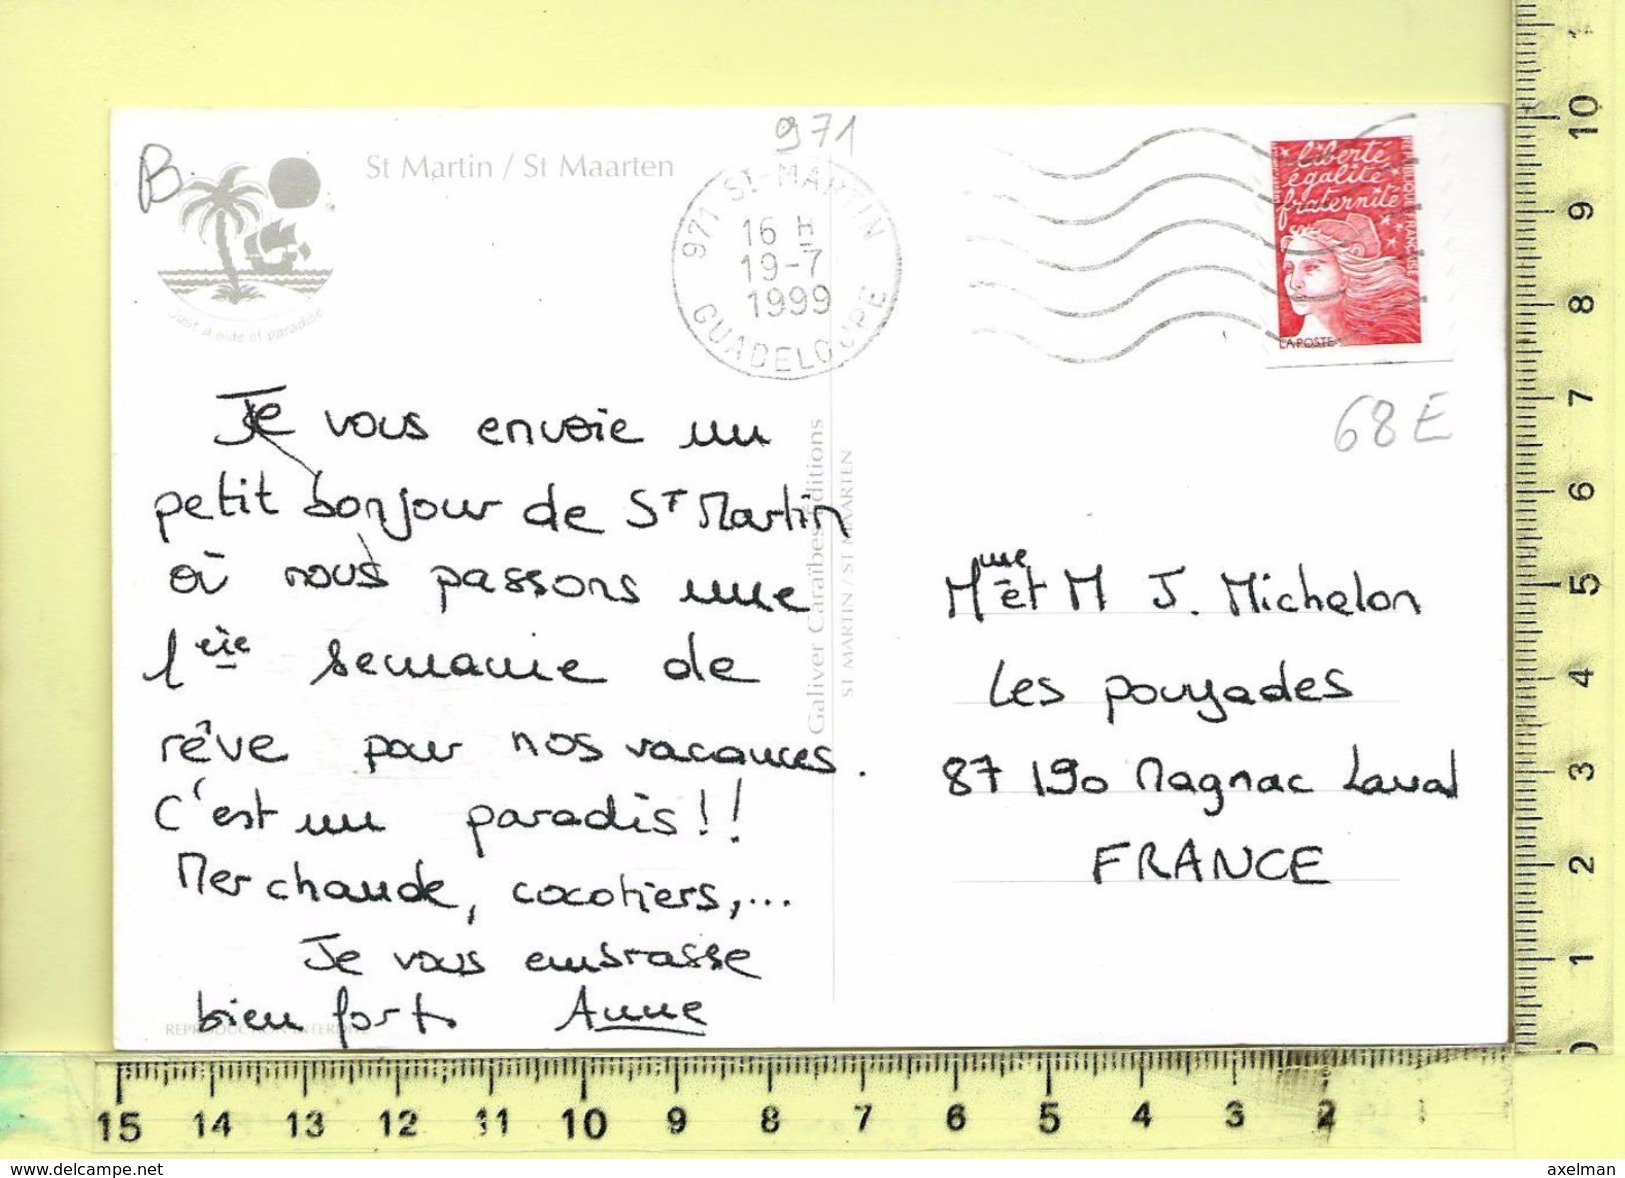 B
St Martin / St Maarten
Just a side of paradise
971
971 ST-MARTIN
16 H
19-7
1999
GUADELOUPE
liberté
égalité
fraternité
RÉPUBLIQUE FRANÇAISE
LA POSTE
68E
Je vous envoie un
petit bonjour de ST Martin
où nous passons une
1ère semaine de
rêve pour nos vacances.
C'est un paradis!!
Mer chaude, cocotiers,...
Je vous embrasse
bien fort Anne
REPRODUCTION INTERDITE
Galiver Caraïbes éditions
ST MARTIN / ST MAARTEN
Mme et M J. Michelon
Les pouyades
87 190 Magnac Laval
FRANCE
10
9
8
7
6
5
4
3
2
1
0
15 14 13 12 11 10 9 8 7 6 5 4 3 2 1
www.delcampe.net
axelman